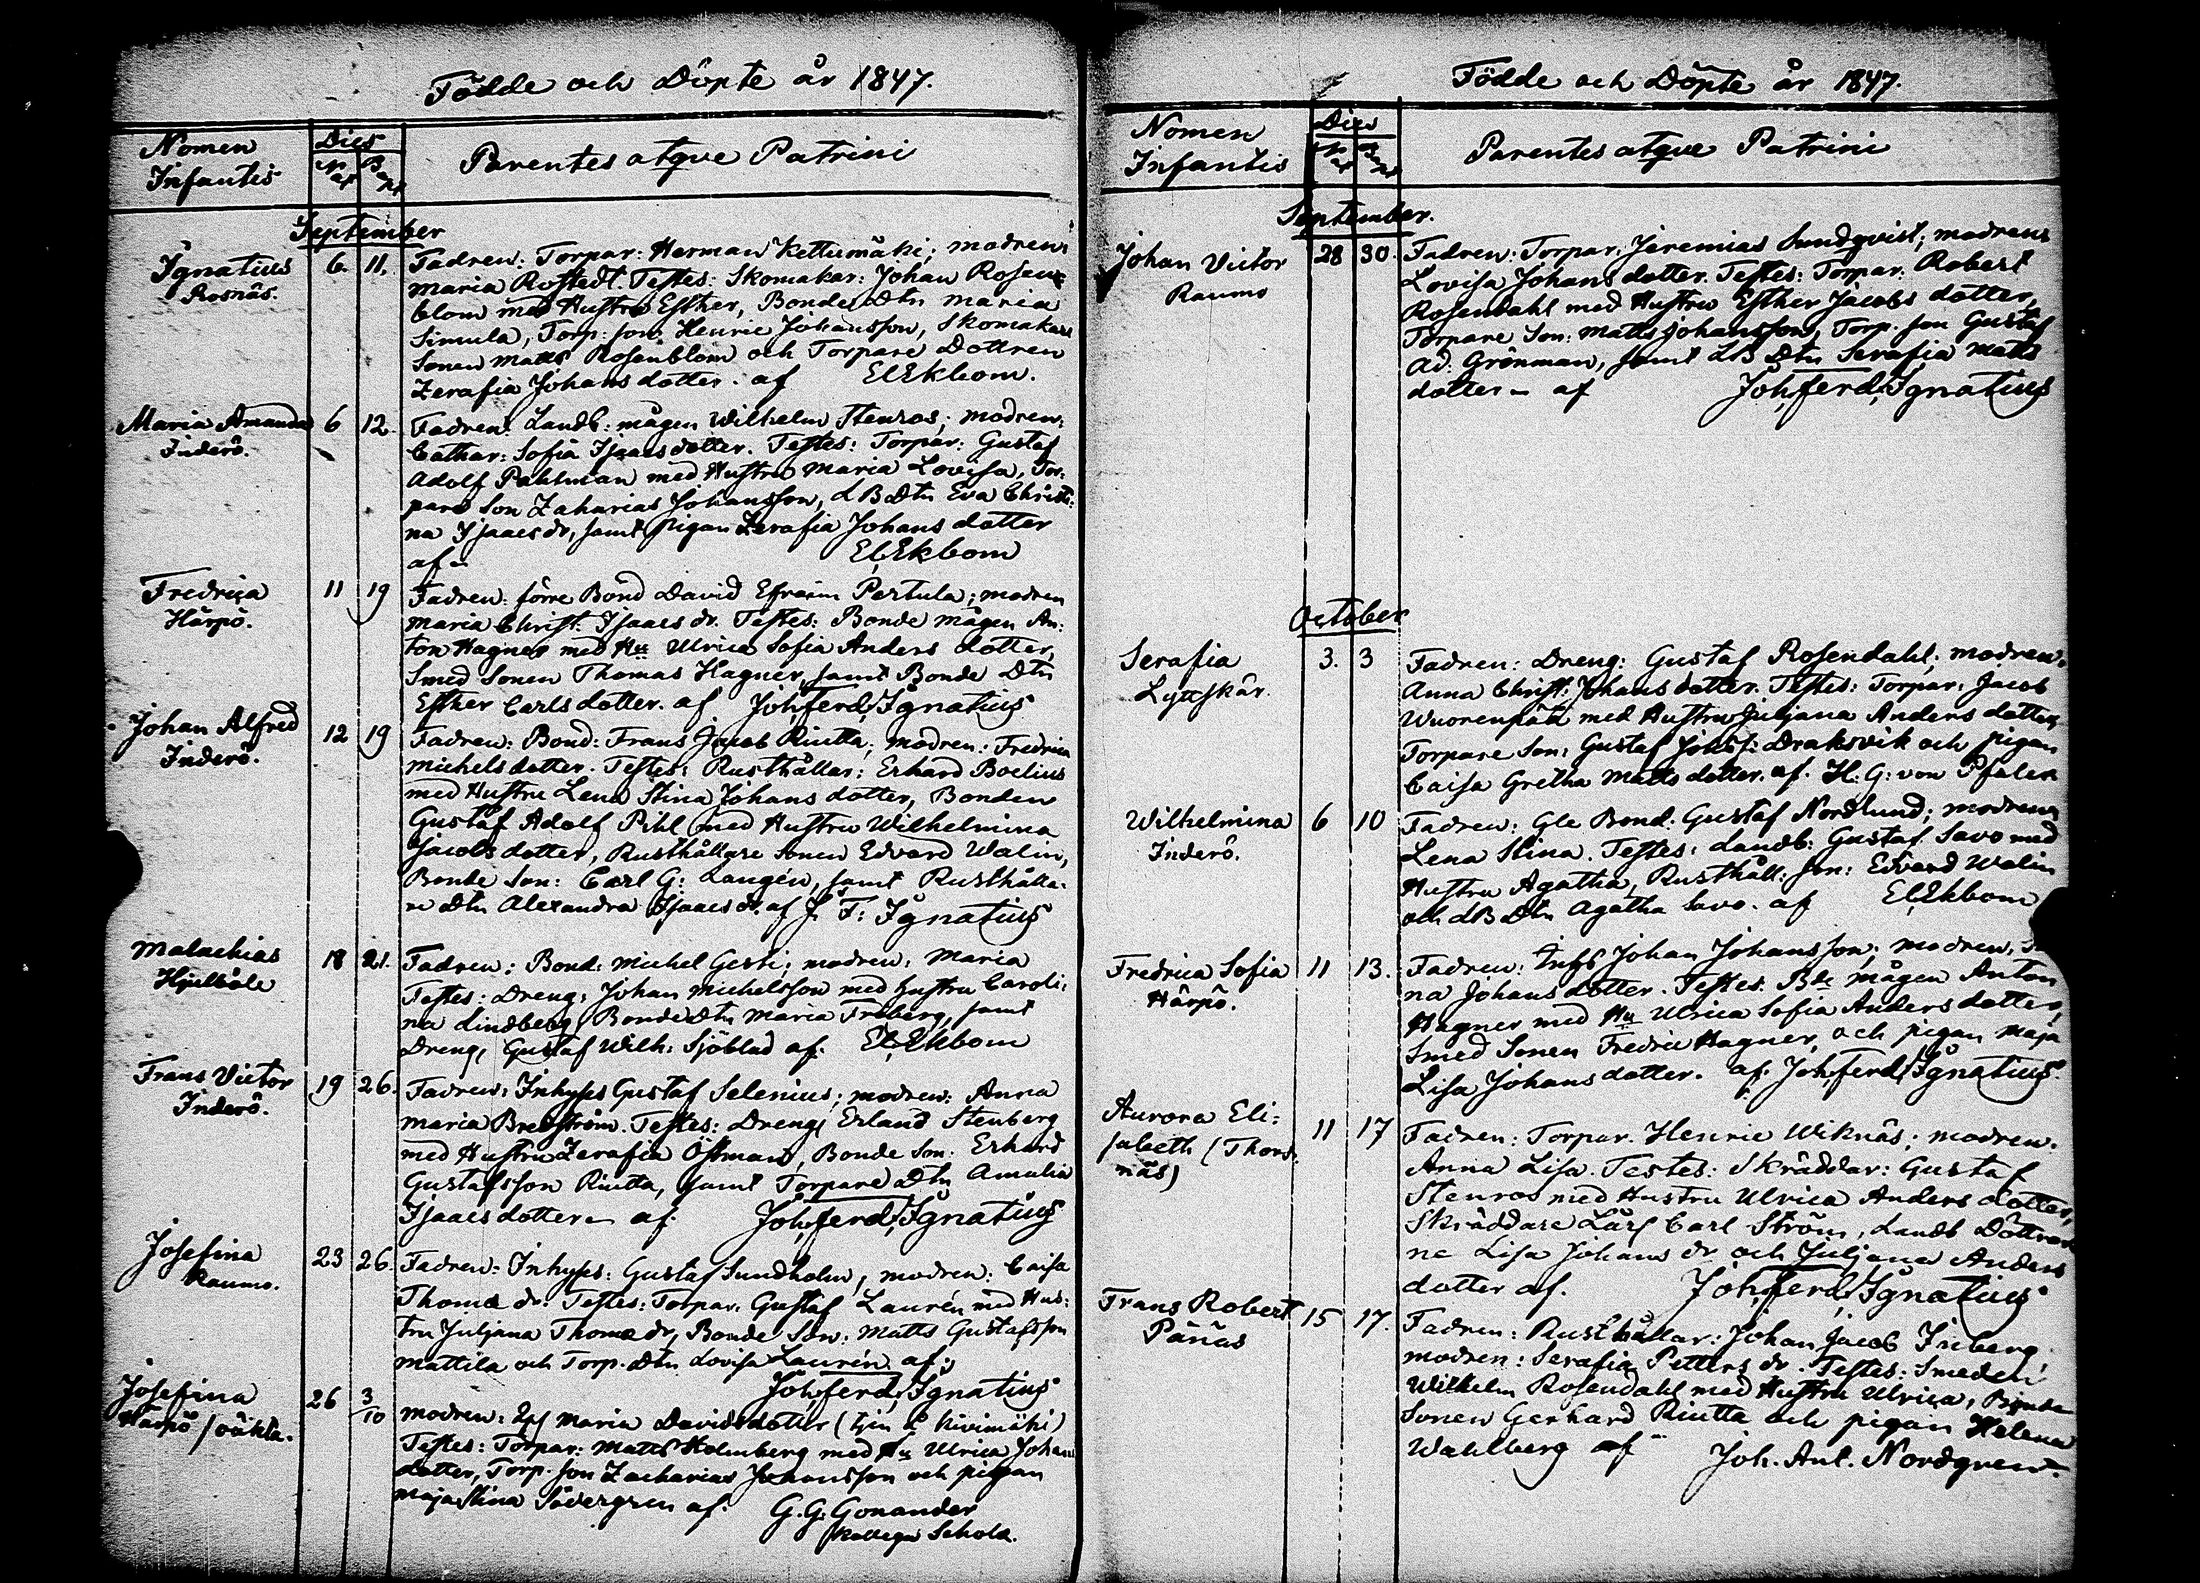 Födde och Döpte år 1847.
Nomen Infantis
Dies
Nat Bapt
Parentes atqve Patrini
September
Ignatius
Rosnäs.
6. 11.
Fadren: Torpar: Herman Kettumäki; modren:
Maria Rostedt. Testes: Skomakar: Johan Rosen
blom med Hustru Esther, Bonde Dtn Maria
Simula, Torp: son Henric Johansson, Skomakare
Sonen Matts Rosenblom och Torpare Dottren
Zerafia Johansdotter. af ElEkbom.
Maria Amanda
Inderö.
6 12.
Fadren: Landb: mågen Wilhelm Stenros; modren:
Cathar: Sofia Isaacsdotter. Testes: Torpar: Gustaf
Adolf Pahlman med Hustru Maria Lovisa, Tor-
pare Son Zaharias Johansson, LB Dtn Eva Christi-
na Isaacs dr, samt pigan Zerafia Johansdotter
af ElEkbom
Fredrica
Härpö.
11 19
Fadren: förre Bond David Efraim Pertula; modren
Maria Christ: Isaacs dr. Testes: Bonde mågen An-
ton Hagner med Hu Ulrica Sofia Anders dotter,
Smed Sonen Thomas Hagner, samt Bonde Dtn
Esther Carlsdotter. af Joh: ferd: Ignatius
Johan Alfred
Inderö.
12 19
Fadren: Bond: Frans Jacob Riutta; modren: Fredrica
Michelsdotter. Testes: Rusthållar: Erhard Boelius
med Hustru Lena Stina Johans dotter, Bonden
Gustaf Adolf Pihl med Hustru Wilhelmina
Jacobsdotter, Rusthållare Sonen Edvard Walin,
Bonde Son: Carl G: Langén, samt Rusthålla-
re Dtn Alexandra Isaacs dr. af J. F: Ignatius
Malachias
Hjulböle
18 21.
Fadren: Bond: Michel Gesti; modren: Maria
Testes: Dreng: Johan Michelsson med hustru Caroli-
na Lindberg, Bonde Dtn Maria Friberg, samt
Dreng: Gustaf Wilh: Sjöblad af: ElEkbom
Frans Victor
Inderö.
19 26.
Fadren: Inhyses Gustaf Selenius; modren: Anna
Maria Bredström. Testes: Dreng: Erland Stenberg
med Hustru Zerafia Östman, Bonde Son: Erhard
Gustafsson Riutta, samt Torpare Dtn Amalia
Isaacsdotter af: Joh: ferd: Ignatius
Josefina
Raumo.
23 26.
Fadren: Inhyses: Gustaf Sundholm; modren: Caisa
Thomæ dr. Testes: Torpar: Gustaf Laurén med Hus-
tru Juljana Thomæ dr, Bonde Son: Matts Gustafsson
Mattila och Torp. Dtn Lovisa Laurén. af:
Joh: ferd: Ignatius
Josefina
Härpö
26 3/10
Modren: Maria Davidsdotter (tjen å Kivimäki)
Testes: Torpar: Matts Holmberg med Hu Ulrica Johans
dotter, Torp. son Zacharias Johansson och pigan
Maja Stina Södergren af: G. G: Gonander
Kollega Schola.
Födde och Döpte år 1847.
Nomen Infantis
Dies
Nat Bapt
Parentes atqve Patrini
September.
Johan Victor
Raumo
28 30.
Fadren: Torpar: Jeremias Sundqvist; modren
Lovisa Johansdotter. Testes: Torpar: Robert
Rosendahl med Hustru Esther Jacobs dotter,
Torpare Son: Matts Johansson, Torp. son Gustaf
Ad: Grönman, samt LB Dtn Serafia Matts
dotter af Joh: ferd: Ignatius
October
Serafia
Lyttskär.
3. 3
Fadren: Dreng: Gustaf Rosendahl; modren:
Anna Christ: Johansdotter. Testes: Torpar: Jacob
Wuorenpää med Hustru Juljana Anders dotter,
Torpare Son: Gustaf Johs: Draksvik och pigan
Caisa Gretha Mattsdotter. af: H: G: von Pfaler
Wilhelmina
Inderö.
6 10
Fadren: Gle Bond: Gustaf Nordlund; modren
Lena Stina. Testes: Landb: Gustaf Savo med
Hustru Agatha, Rusthåll: son: Edvard Walin
och LB Dtn Agatha Savo. af ElEkbom
Fredrica Sofia
Härpö.
11 13.
Fadren: Inhs Johan Johansson; modren:
na Johansdotter. Testes: Bde mågen Anton
Hagner med Hu Ulrica Sofia Anders dotter,
Smed Sonen Fredric Hagner, och pigan Maja
Lisa Johansdotter. af: Joh: ferd: Ignatius.
Aurora Eli-
sabeth (Thors-
näs)
11 17
Fadren: Torpar. Henric Wiknäs; modren.
Anna Lisa. Testes: Skräddar: Gustaf
Stenros med Hustru Ulrica Anders dotter,
Skräddare Lärl Carl Ström, Landb Döttrar
ne Lisa Johans dr och Juljana Anders
dotter af. Joh: ferd: Ignatius
Frans Robert
Pånäs
15 17.
Fadren: Rusthållar: Johan Jacob Friberg;
modren: Serafia Petters dr. Testes: Smeden
Wilhelm Rosendahl med Hustru Ulrica, Bonde
Sonen Gerhard Riutta och pigan Helena
Wahlberg af Joh. Ant. Nordgren.